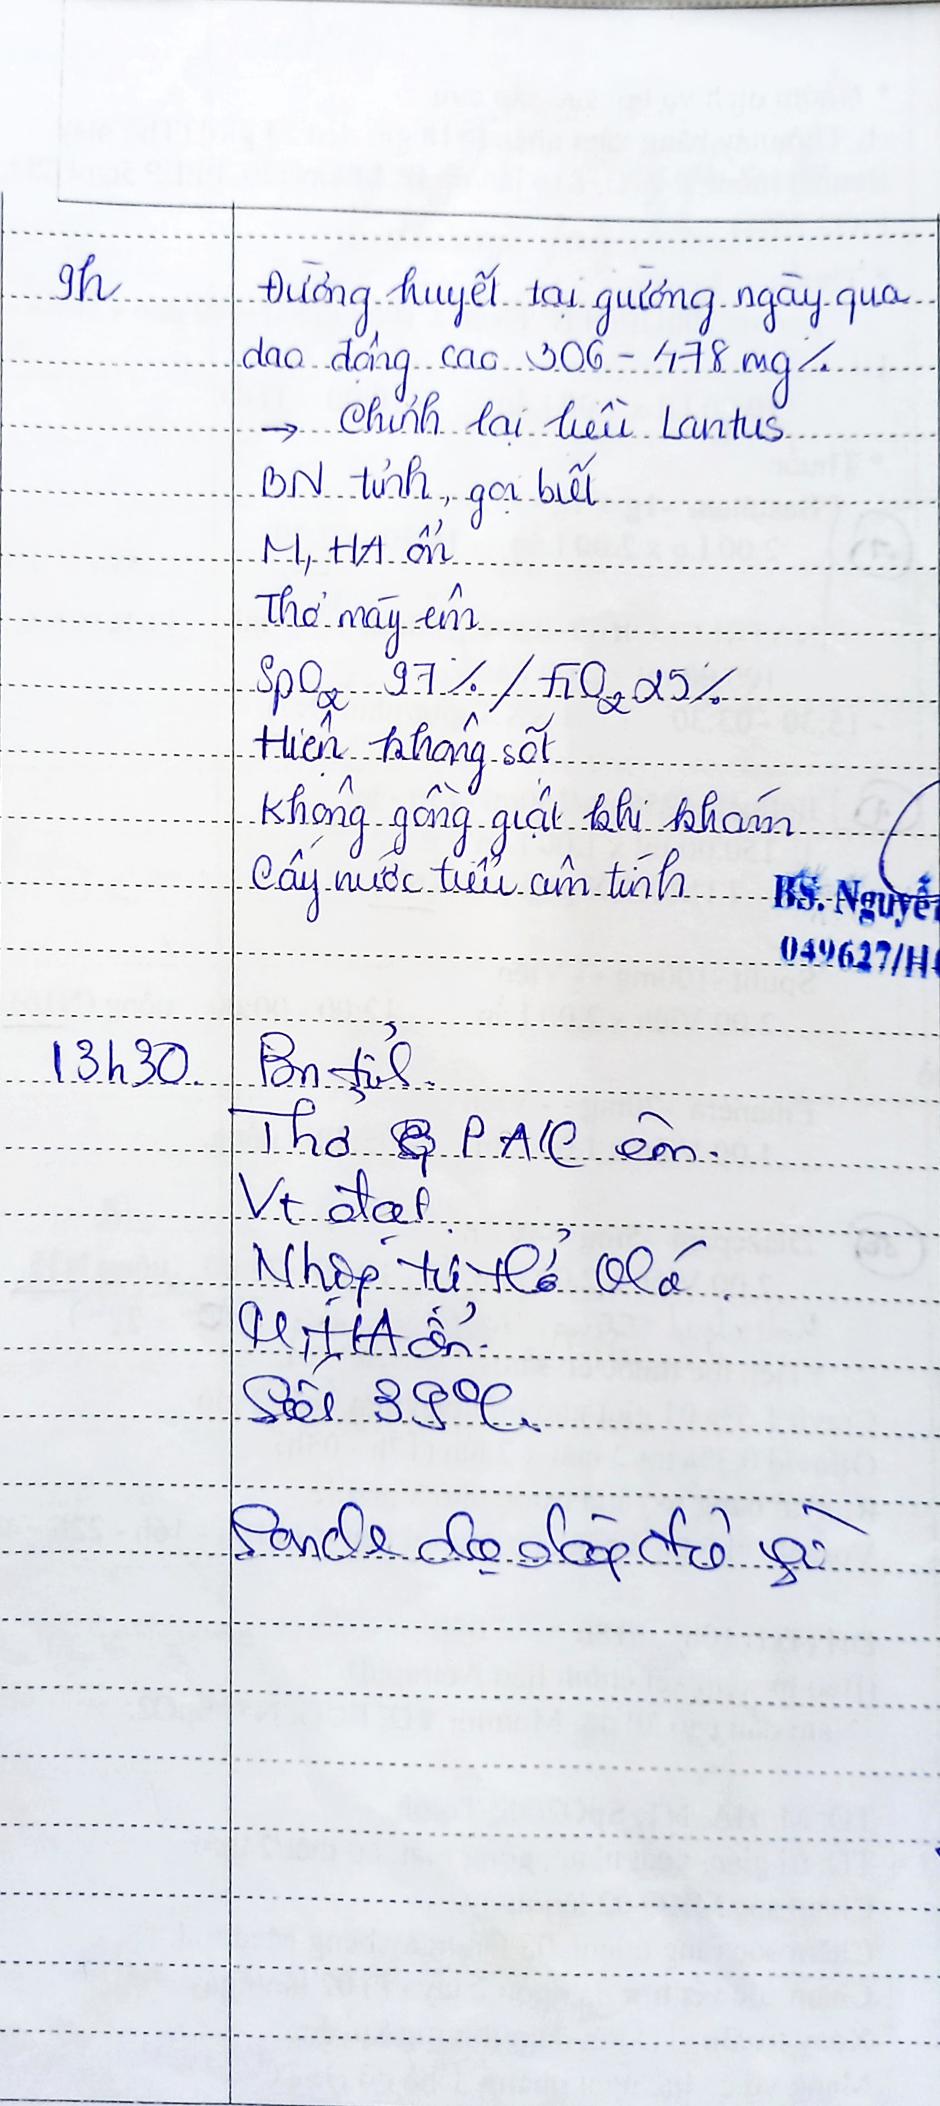 9h
Đường huyết tại giường ngày qua
dao động cao 306 - 478 mg%
→ Chỉnh lại liều Lantus
BN tỉnh, gọi biết
M, HA ổn
Thở máy êm
SpO2 97% / FiO2 25%
Hiện không sốt
Không gồng giật khi khám
Cấy nước tiểu âm tính
BS. Nguyễ
049627/H
13h30
Bn tỉnh
Thở PAC êm.
Vt đạt
Nhịp tự thở khá
M, HA ổn.
Sốt 39°C.
Sonde dạ dày